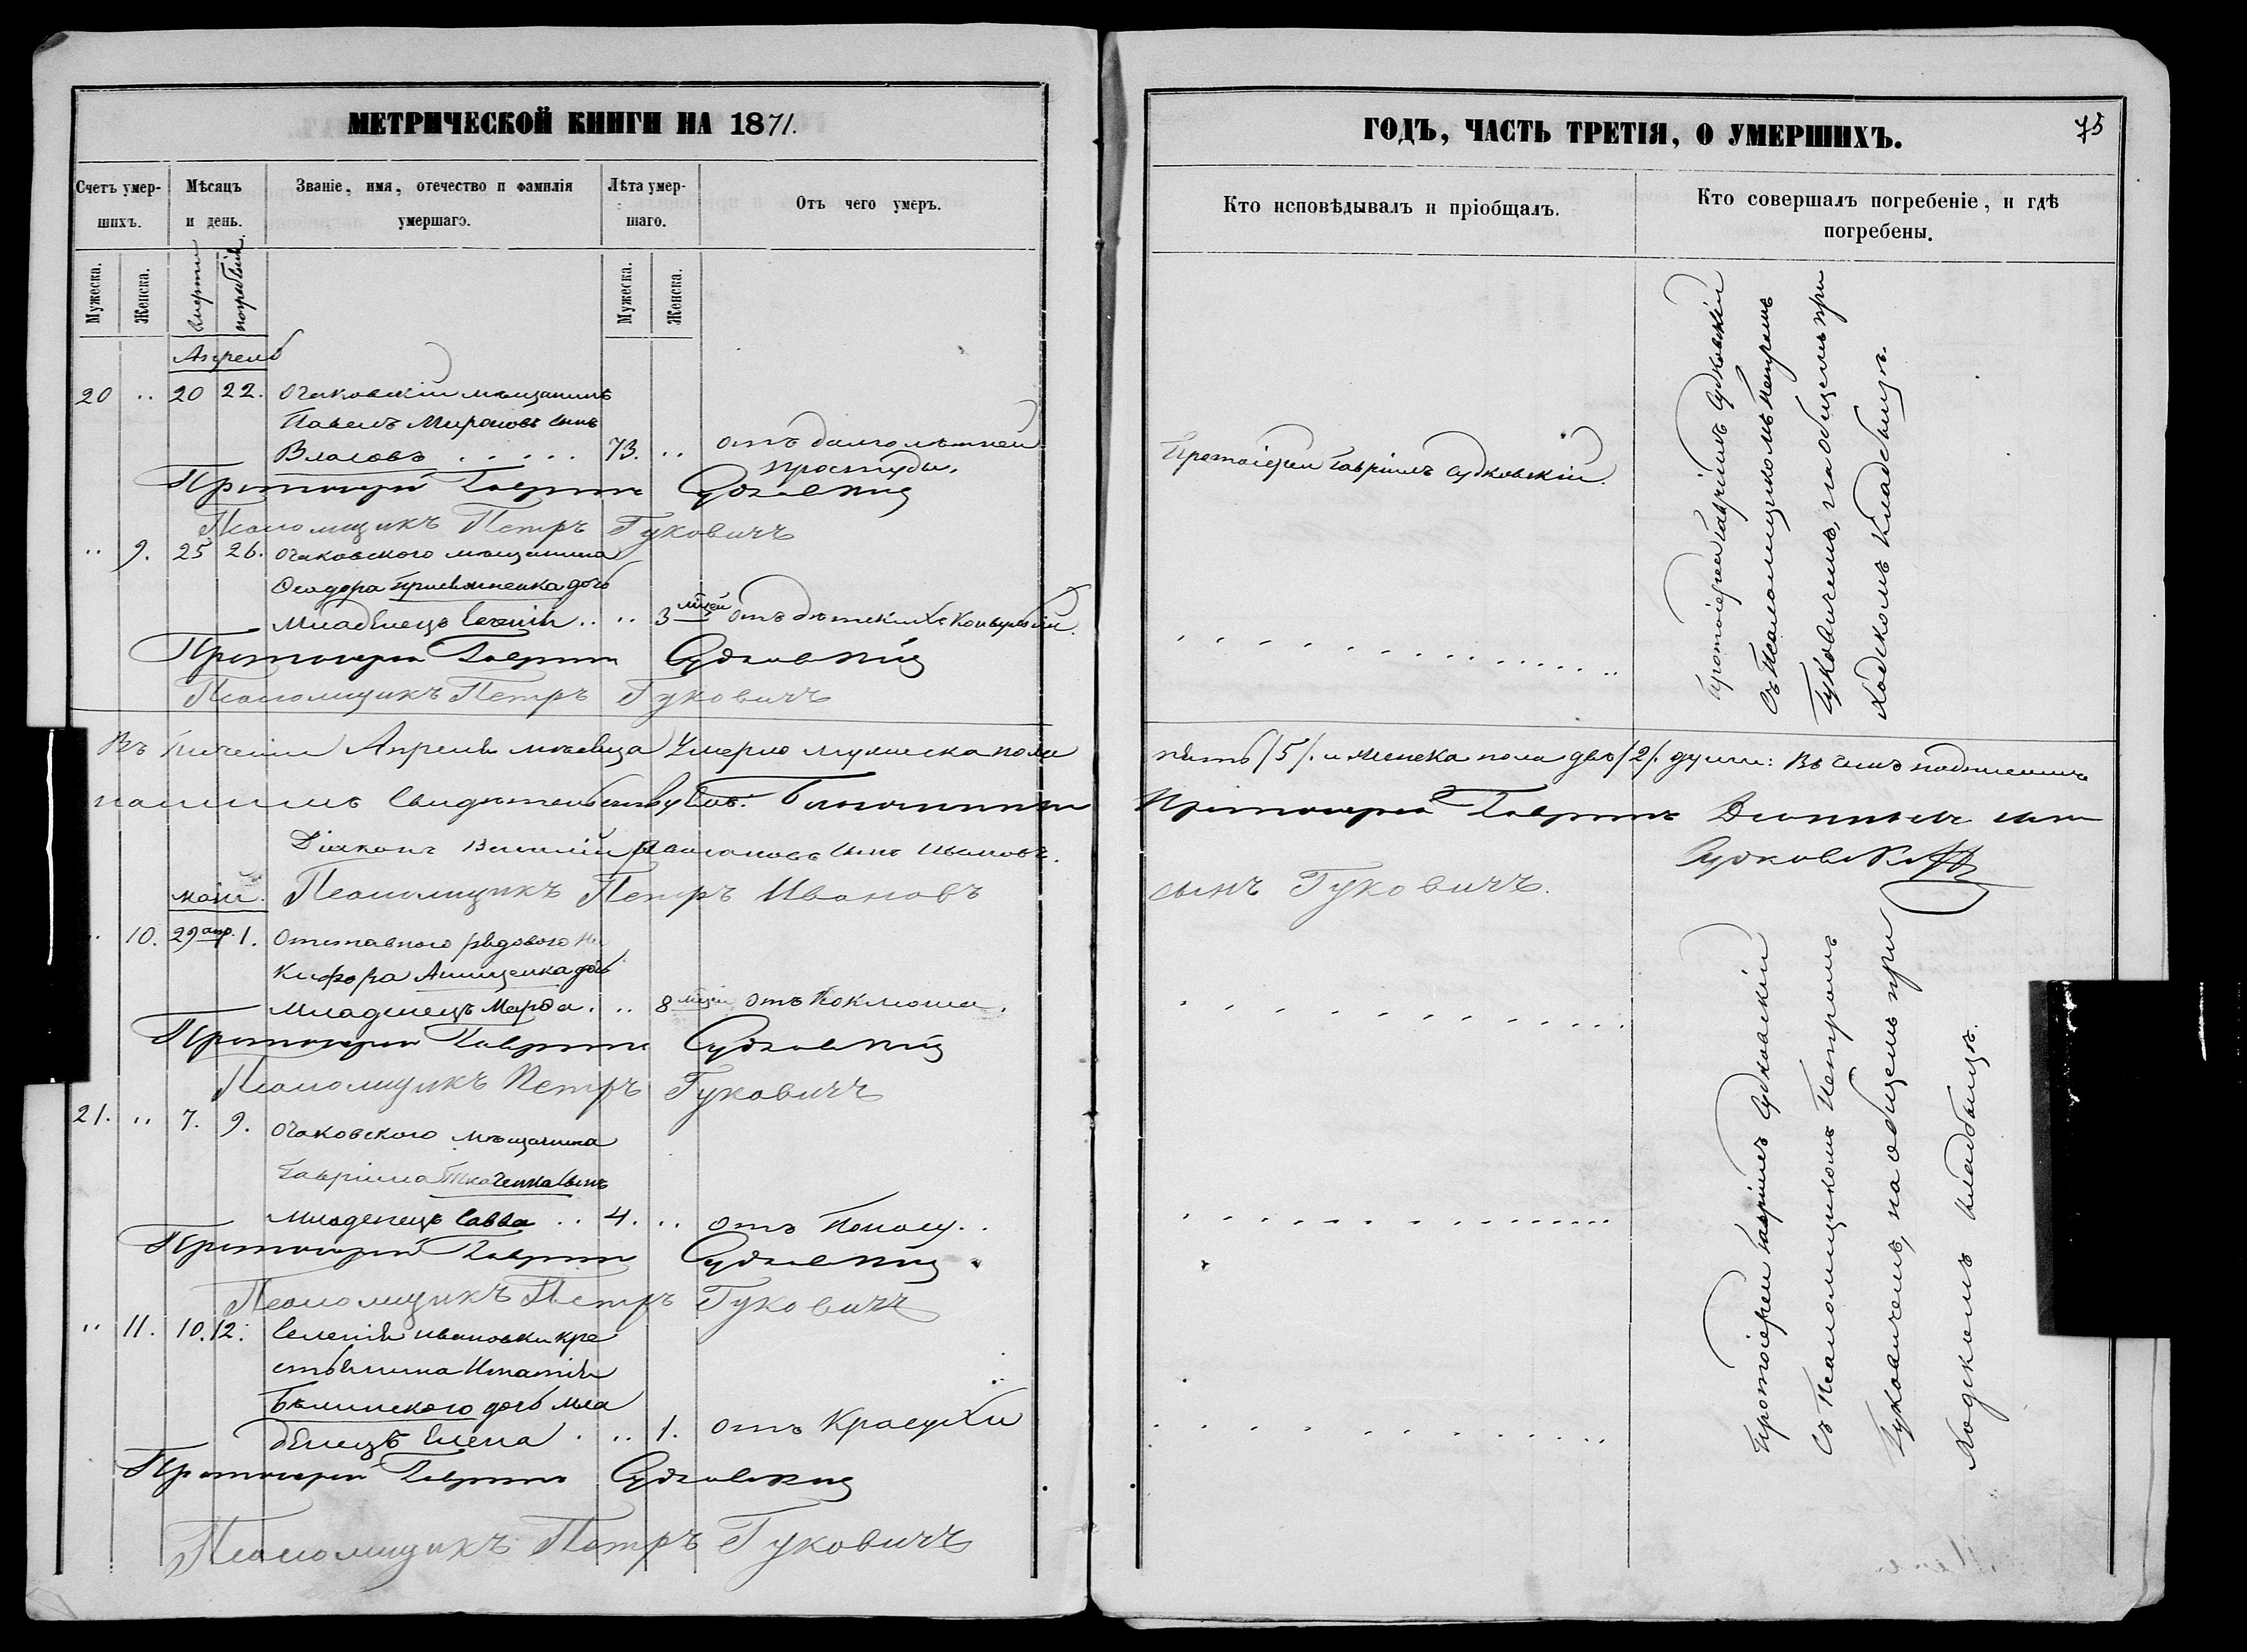 МЕТРИЧЕСКОЙ КНИГИ НА 1871.
Счетъ умер-
шихъ.
Мѣсяцъ
и день.
Званіе, имя, отечество и фамилія
умершаго.
Лѣта умер-
шаго.
Отъ чего умеръ.
Мужеска.
Женска.
смерти
погребенія
Мужеска.
Женска.
Апрель
20 .. 20 22. Очаковскій мѣщанинъ
Павелъ Мироновъ сынъ
Власовъ . . . . . 73. .. отъ долголѣтней
простуды.
Протоіерей Гавріилъ Судковскій
Псаломщикъ Петръ Гуковичъ
.. 9. 25 26. Очаковского мѣщанина
Ѳеодора дочь
младенецъ Евгенія .. .. 3 мѣсяцей отъ дѣтскихъ конвульсій.
Протоіерей Гавріилъ Судковскій
Псаломщикъ Петръ Гуковичъ
Въ теченіи Апреля мѣсяца умерло мужеска пола
Діаконъ Василій сынъ Ивановъ.
Псаломщикъ Петръ Ивановъ
май.
.. 10. 29 апр. 1. Отставного рядового Ни
кифора Анищенка дочь
младенецъ Марѳа. .. 8 мѣсяцей отъ Коклюша.
Протоіерей Гавріилъ Судковскій
Псаломщикъ Петръ Гуковичъ
21. .. 7. 9. Очаковского мѣщанина
Гавріила Ткаченка сынъ
младенецъ Савва .. 4. .. отъ Поносу..
Протоіерей Гавріилъ Судковскій
Псаломщикъ Петръ Гуковичъ
.. 11. 10. 12. Селенія Ивановки кре
стьянина Игнатія
Бѣлинского дочь мла
денецъ Елена . .. 1. отъ Краснухи
Протоіерей Гавріилъ Судковскій
Псаломщикъ Петръ Гуковичъ
ГОДЪ, ЧАСТЬ ТРЕТІЯ, О УМЕРШИХЪ.
75
Кто исповѣдывалъ и пріобщалъ.
Кто совершалъ погребеніе, и гдѣ
погребены.
Протоіерей Гавріилъ Судковскій.
Протоіерей Гавріилъ Судковскій
съ Псаломщикомъ Петромъ
Гуковичемъ, на общемъ при
ходскомъ кладбищѣ.
пять /5/. и женска пола двѣ /2/. души: въ чемъ подписомъ
нашимъ свидѣтельствуемъ: Протоіерей Гавріилъ сынъ
Судковскій
сынъ Гуковичъ.
Протоіерей Гавріилъ Судковскій
съ Псаломщикомъ Петромъ
Гуковичемъ, на общемъ при
ходскомъ кладбищѣ.